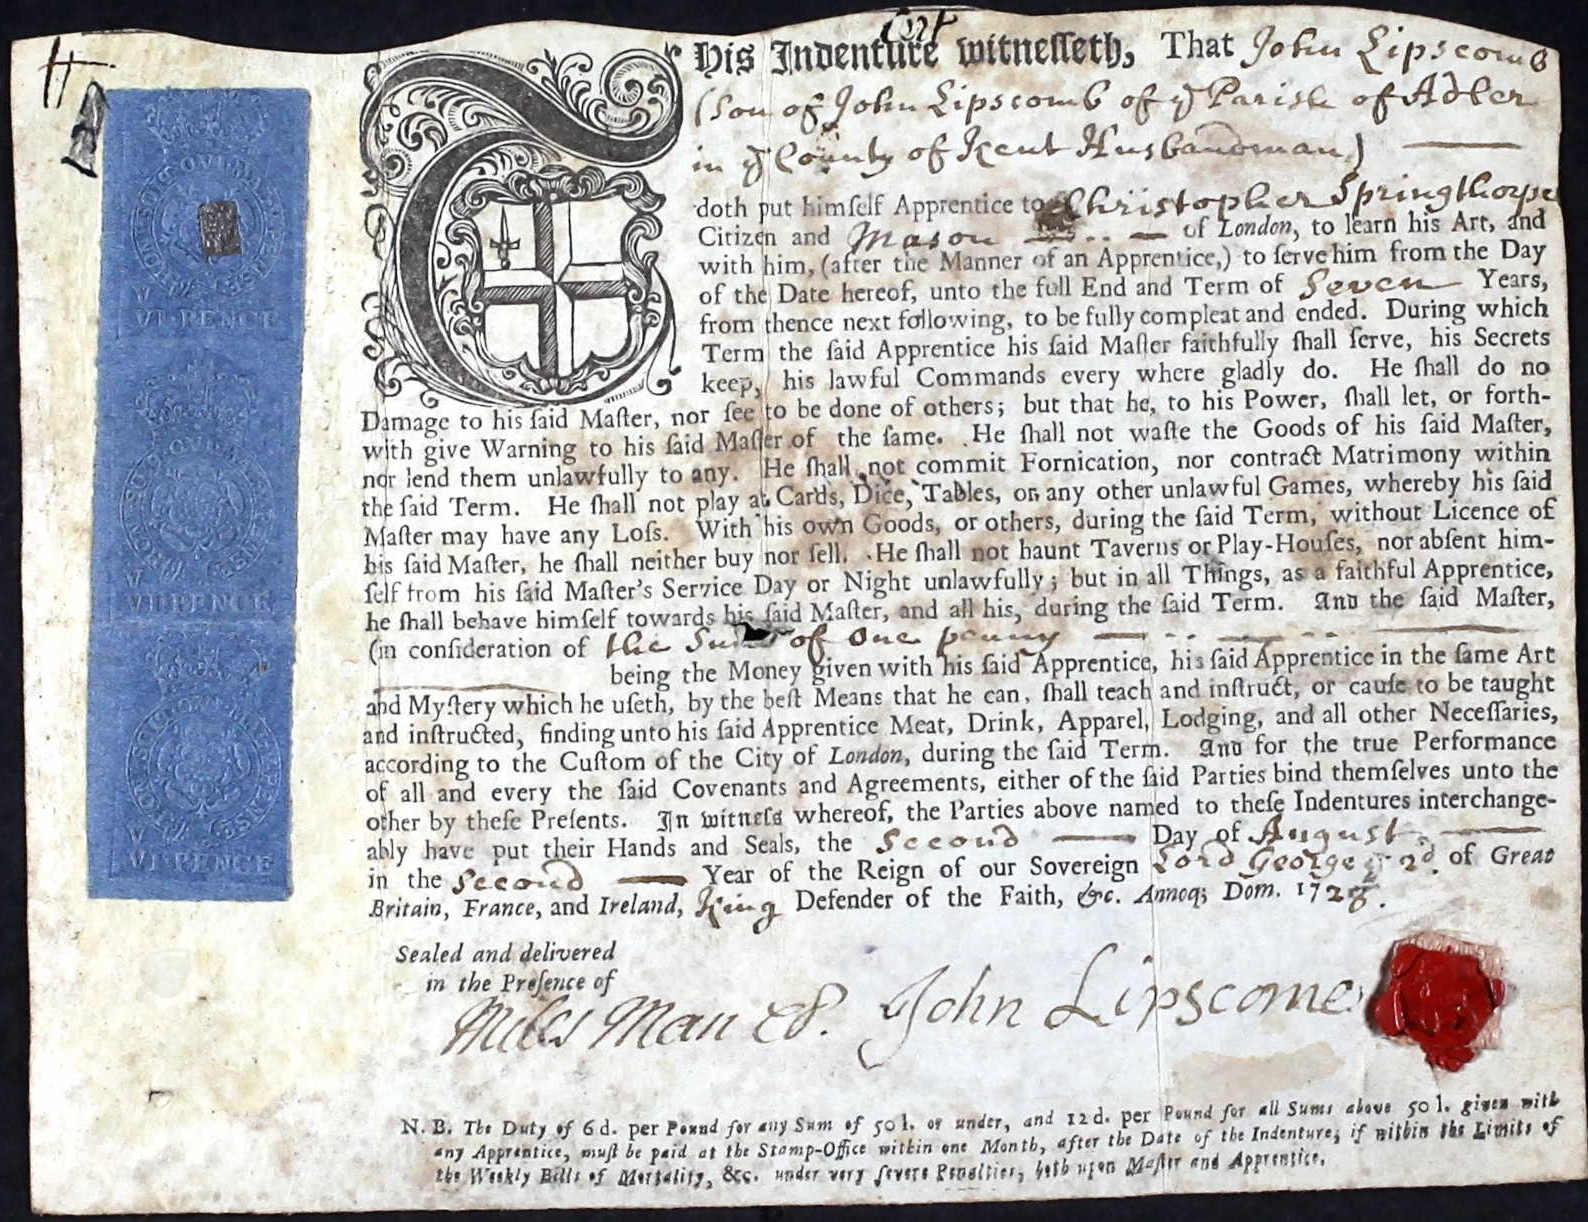 This Indenture witnesseth, That John Lipscomb
(Son of John Lipscomb of yͤ Parish of Adler
in yͤ County of Kent Husbandman)
doth put himſelf Apprentice to Christopher Springthorpe
Citizen and Mason of London, to learn his Art, and
with him, (after the Manner of an Apprentice,) to ſerve him from the Day
of the Date hereof, unto the full End and Term of Seven Years,
from thence next following, to be fully compleat and ended. During which
Term the ſaid Apprentice his ſaid Maſter faithfully ſhall ſerve, his Secrets
keep, his lawful Commands every where gladly do. He ſhall do no
Damage to his ſaid Maſter, nor ſee to be done of others; but that he, to his Power, ſhall let, or forth-
with give Warning to his ſaid Maſter of the ſame. He ſhall not waſte the Goods of his ſaid Maſter,
nor lend them unlawfully to any. He ſhall not commit Fornication, nor contract Matrimony within
the ſaid Term. He ſhall not play at Cards, Dice, Tables, or any other unlawful Games, whereby his ſaid
Maſter may have any Loſs. With his own Goods, or others, during the ſaid Term, without Licence of
his ſaid Maſter, he ſhall neither buy nor ſell. He ſhall not haunt Taverns or Play-Houſes, nor abſent him-
ſelf from his ſaid Maſter's Service Day or Night unlawfully; but in all Things, as a faithful Apprentice,
he ſhall behave himſelf towards his ſaid Maſter, and all his, during the ſaid Term. And the ſaid Maſter,
(in conſideration of the Sum of One penny
being the Money given with his ſaid Apprentice, his ſaid Apprentice in the ſame Art
and Myſtery which he uſeth, by the beſt Means that he can, ſhall teach and inſtruct, or cauſe to be taught
and inſtructed, finding unto his ſaid Apprentice Meat, Drink, Apparel, Lodging, and all other Neceſſaries,
according to the Cuſtom of the City of London, during the ſaid Term. And for the true Performance
of all and every the ſaid Covenants and Agreements, either of the ſaid Parties bind themſelves unto the
other by theſe Preſents. In witneſs whereof, the Parties above named to theſe Indentures interchange-
ably have put their Hands and Seals, the Second Day of August
in the Second Year of the Reign of our Sovereign Lord George yͤ 2d. of Great
Britain, France, and Ireland, King Defender of the Faith, &c. Annoq; Dom. 1728.
Sealed and delivered
in the Preſence of
Miles Man
John Lipscome
N. B. The Duty of 6d. per Pound for any Sum of 50 l. or under, and 12d. per Pound for all Sums above 50 l. given with
any Apprentice, muſt be paid at the Stamp-Office within one Month, after the Date of the Indenture, if within the Limits of
the Weekly Bills of Mortality, &c. under very ſevere Penalties, both upon Maſter and Apprentice.
VI·PENCE
VI PENCE
VI·PENCE